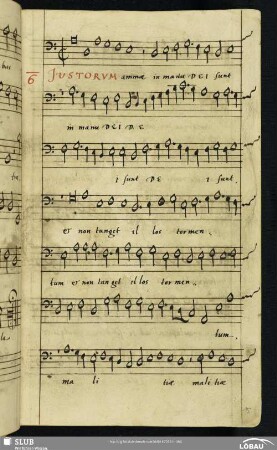 6 JUSTORVM animæ in manu DEI sunt
in manu DEI DE
I sunt DE I sunt.
et non tanget illos tormen
tum et non tanget illos tormen
tum.
ma li tiæ malitiæ
SLUB
LÖBAU